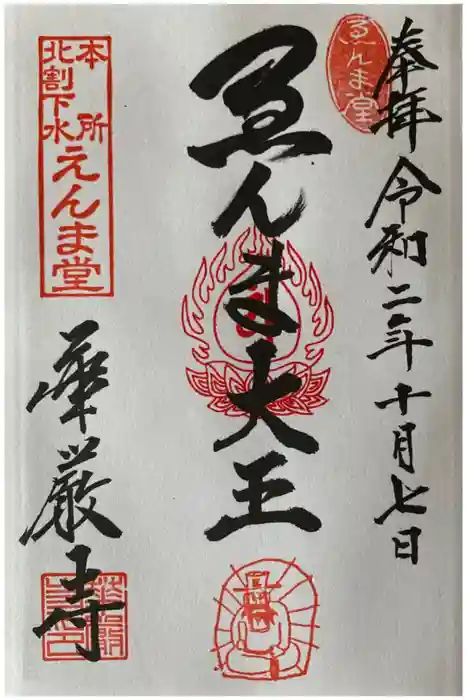 奉拝 令和二年十月七日
ゑんま堂
ゑんま大王
本所
北割下水
えんま堂
華厳寺